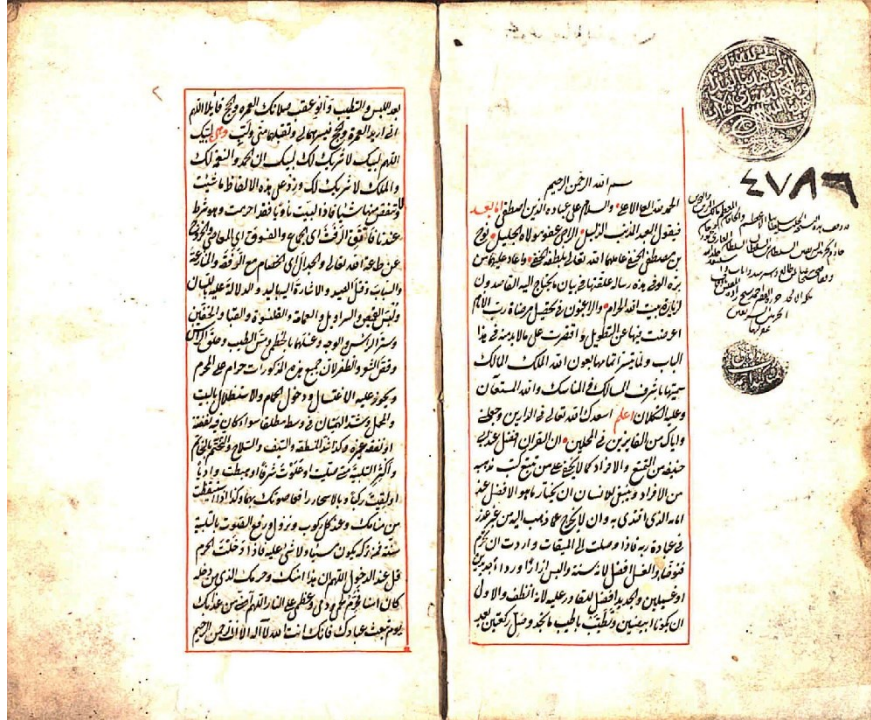 بسم الله الرحمن الرحيم
الحمد لله العلي الاعلى والسلام على عباده الذين اصطفى اما بعد
فيقول العبد المذنب الذليل الراجي عفو مولاه الجليل نوح
بن مصطفى الحنفي عاملهما الله تعالى بلطفه الخفي واعاد عليهما من
بره الوفي هذه رسالة علقتها في بيان ما يحتاج اليه القاصدون
لزيارة بيت الله الحرام والراغبون في تحصيل مرضاة رب الانام
اعرضت فيها عن التطويل واقتصرت على ما لا بد منه في هذا
الباب ولما تيسر اتمامها بعون الله الملك المالك
سميتها باشرف المسالك في المناسك والله المستعان
وعليه التكلان اعلم اسعدك الله تعالى في الدارين وجعلني
واياك من الفايزين في المحلين ان القران افضل عند ابي
حنيفة من التمتع والافراد كما لا يخفى على من تتبع كتب مذهبه
من الافراد وينبغي للانسان ان يختار ما هو الافضل عند
امامه الذي اقتدى به وان لا يخرج عما ذهب اليه من غير عذر
في عبادة ربه فاذا وصلت الى الميقات واردت ان تحرم
فتوضأ والغسل افضل لانه سنة والبس ازارا ورداء جديدين
او غسيلين والجديد افضل للقادر عليه لانه انظف والاولى
ان يكونا ابيضين وتطيب باطيب ما تجد وصل ركعتين بعد
٤٧٨٦
٢
بعد اللبس والتطيب وانو عقب صلاتك العمرة والحج قايلا اللهم
اني اريد العمرة والحج فيسرهما لي وتقبلهما مني ولب وهي لبيك
اللهم لبيك لا شريك لك لبيك ان الحمد والنعمة لك
والملك لا شريك لك وزد على هذه الالفاظ ما شئت
ولا تنقص منها شيئا فاذا لبيت ناويا فقد احرمت وهو شرط
عندنا فاتق الرفث اي الجماع والفسوق اي المعاصي والخروج
عن طاعة الله تعالى والجدال اي الخصام مع الرفقة
والسباب وقتل الصيد والاشارة اليه والدلالة عليه
ولبس القميص والسراويل والعمامة والقلنسوة والقباء والخفين
وستر الراس والوجه وغسلهما بالخطمي ومس الطيب وحلق الراس
وقص الشعر والظفر لان جميع هذه المذكورات حرام على المحرم
ويجوز عليه الاغتسال ودخول الحمام والاستظلال بالبيت
والمحمل وشد الهميان في وسطه مطلقا سواء كان فيه نفقته
او نفقة غيره وكذا شد المنطقة والسيف والسلاح والتختم بالخاتم
واكثر التلبية متى صليت او علوت شرفا او هبطت واديا
او لقيت ركبا وبالاسحار رافعا صوتك بها وكذا اذا استيقظت
من منامك وعند كل ركوب ونزول ورفع الصوت بالتلبية
سنة فمن تركه يكون مسيئا ولا شيء عليه فاذا دخلت الحرم
قل عند الدخول اللهم ان هذا امنك وحرمك الذي من دخله
كان امنا فحرم لحمي ودمي وعظمي على النار اللهم آمني من عذابك
يوم تبعث عبادك فانك انت الله لا اله الا انت الرحمن الرحيم